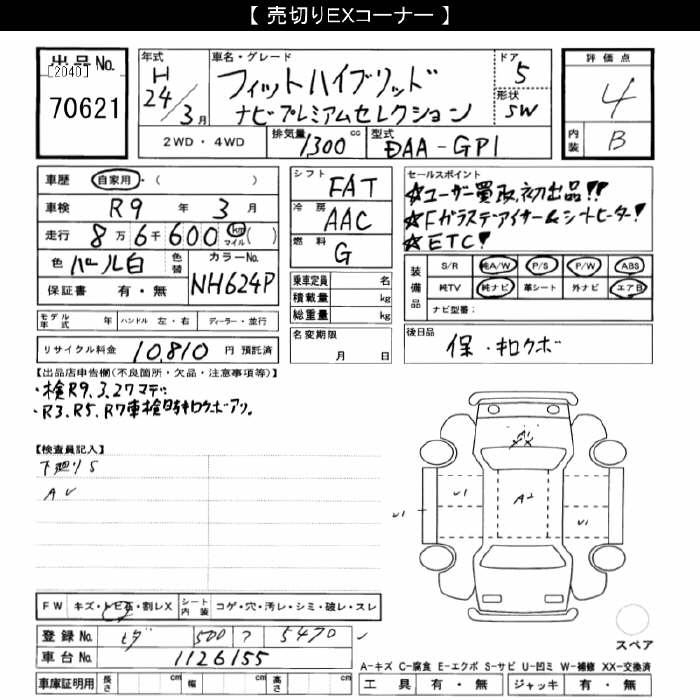 【 売切りEXコーナー 】
出品No.
[2040]
70621
年式 H24/3月
車名・グレード
フィットハイブリッド
ナビプレミアムセレクション
ドア 5
形状 SW
2WD・4WD 排気量 1300 cc 型式 DAA-GP1
評価点 4
内装 B
車歴 自家用・( )
車検 R9年 3月
走行 8万6千600 km マイル( )
色 パール白 色替 カラーNo. NH624P
保証書 有・無
モデル年式 年 ハンドル 左・右 ディーラー・並行
リサイクル料金 10,810 円 預託済
シフト FAT
冷房 AAC
燃料 G
乗車定員 名
積載量 kg
総重量 kg
名変期限 月 日
セールスポイント
☆ユーザー買取、初出品!!
☆Fガラスデアイサー&シートヒーター!
☆ETC!
装備品 S/R 純A/W P/S P/W ABS
純TV 純ナビ 革シート 外ナビ エアB
ナビ型番:
後日品
保・キロクボ
【出品店申告欄(不良箇所・欠品・注意事項等)】
・検R9.3.27マデ
・R3、R5、R7車検時キロクボアリ。
【検査員記入】
下廻りS
AU
A2
U1
U1
U1
U1
FW キズ・トビ石・割レX シート内装 コゲ・穴・汚レ・シミ・破レ・スレ
登録No. 500 ? 5470
車台No. 1126155
車庫証明用 長さ cm 幅 cm 高さ cm
スペア
A-キズ C-腐食 E-エクボ S-サビ U-凹ミ W-補修 XX-交換済
工具 有・無 ジャッキ 有・無